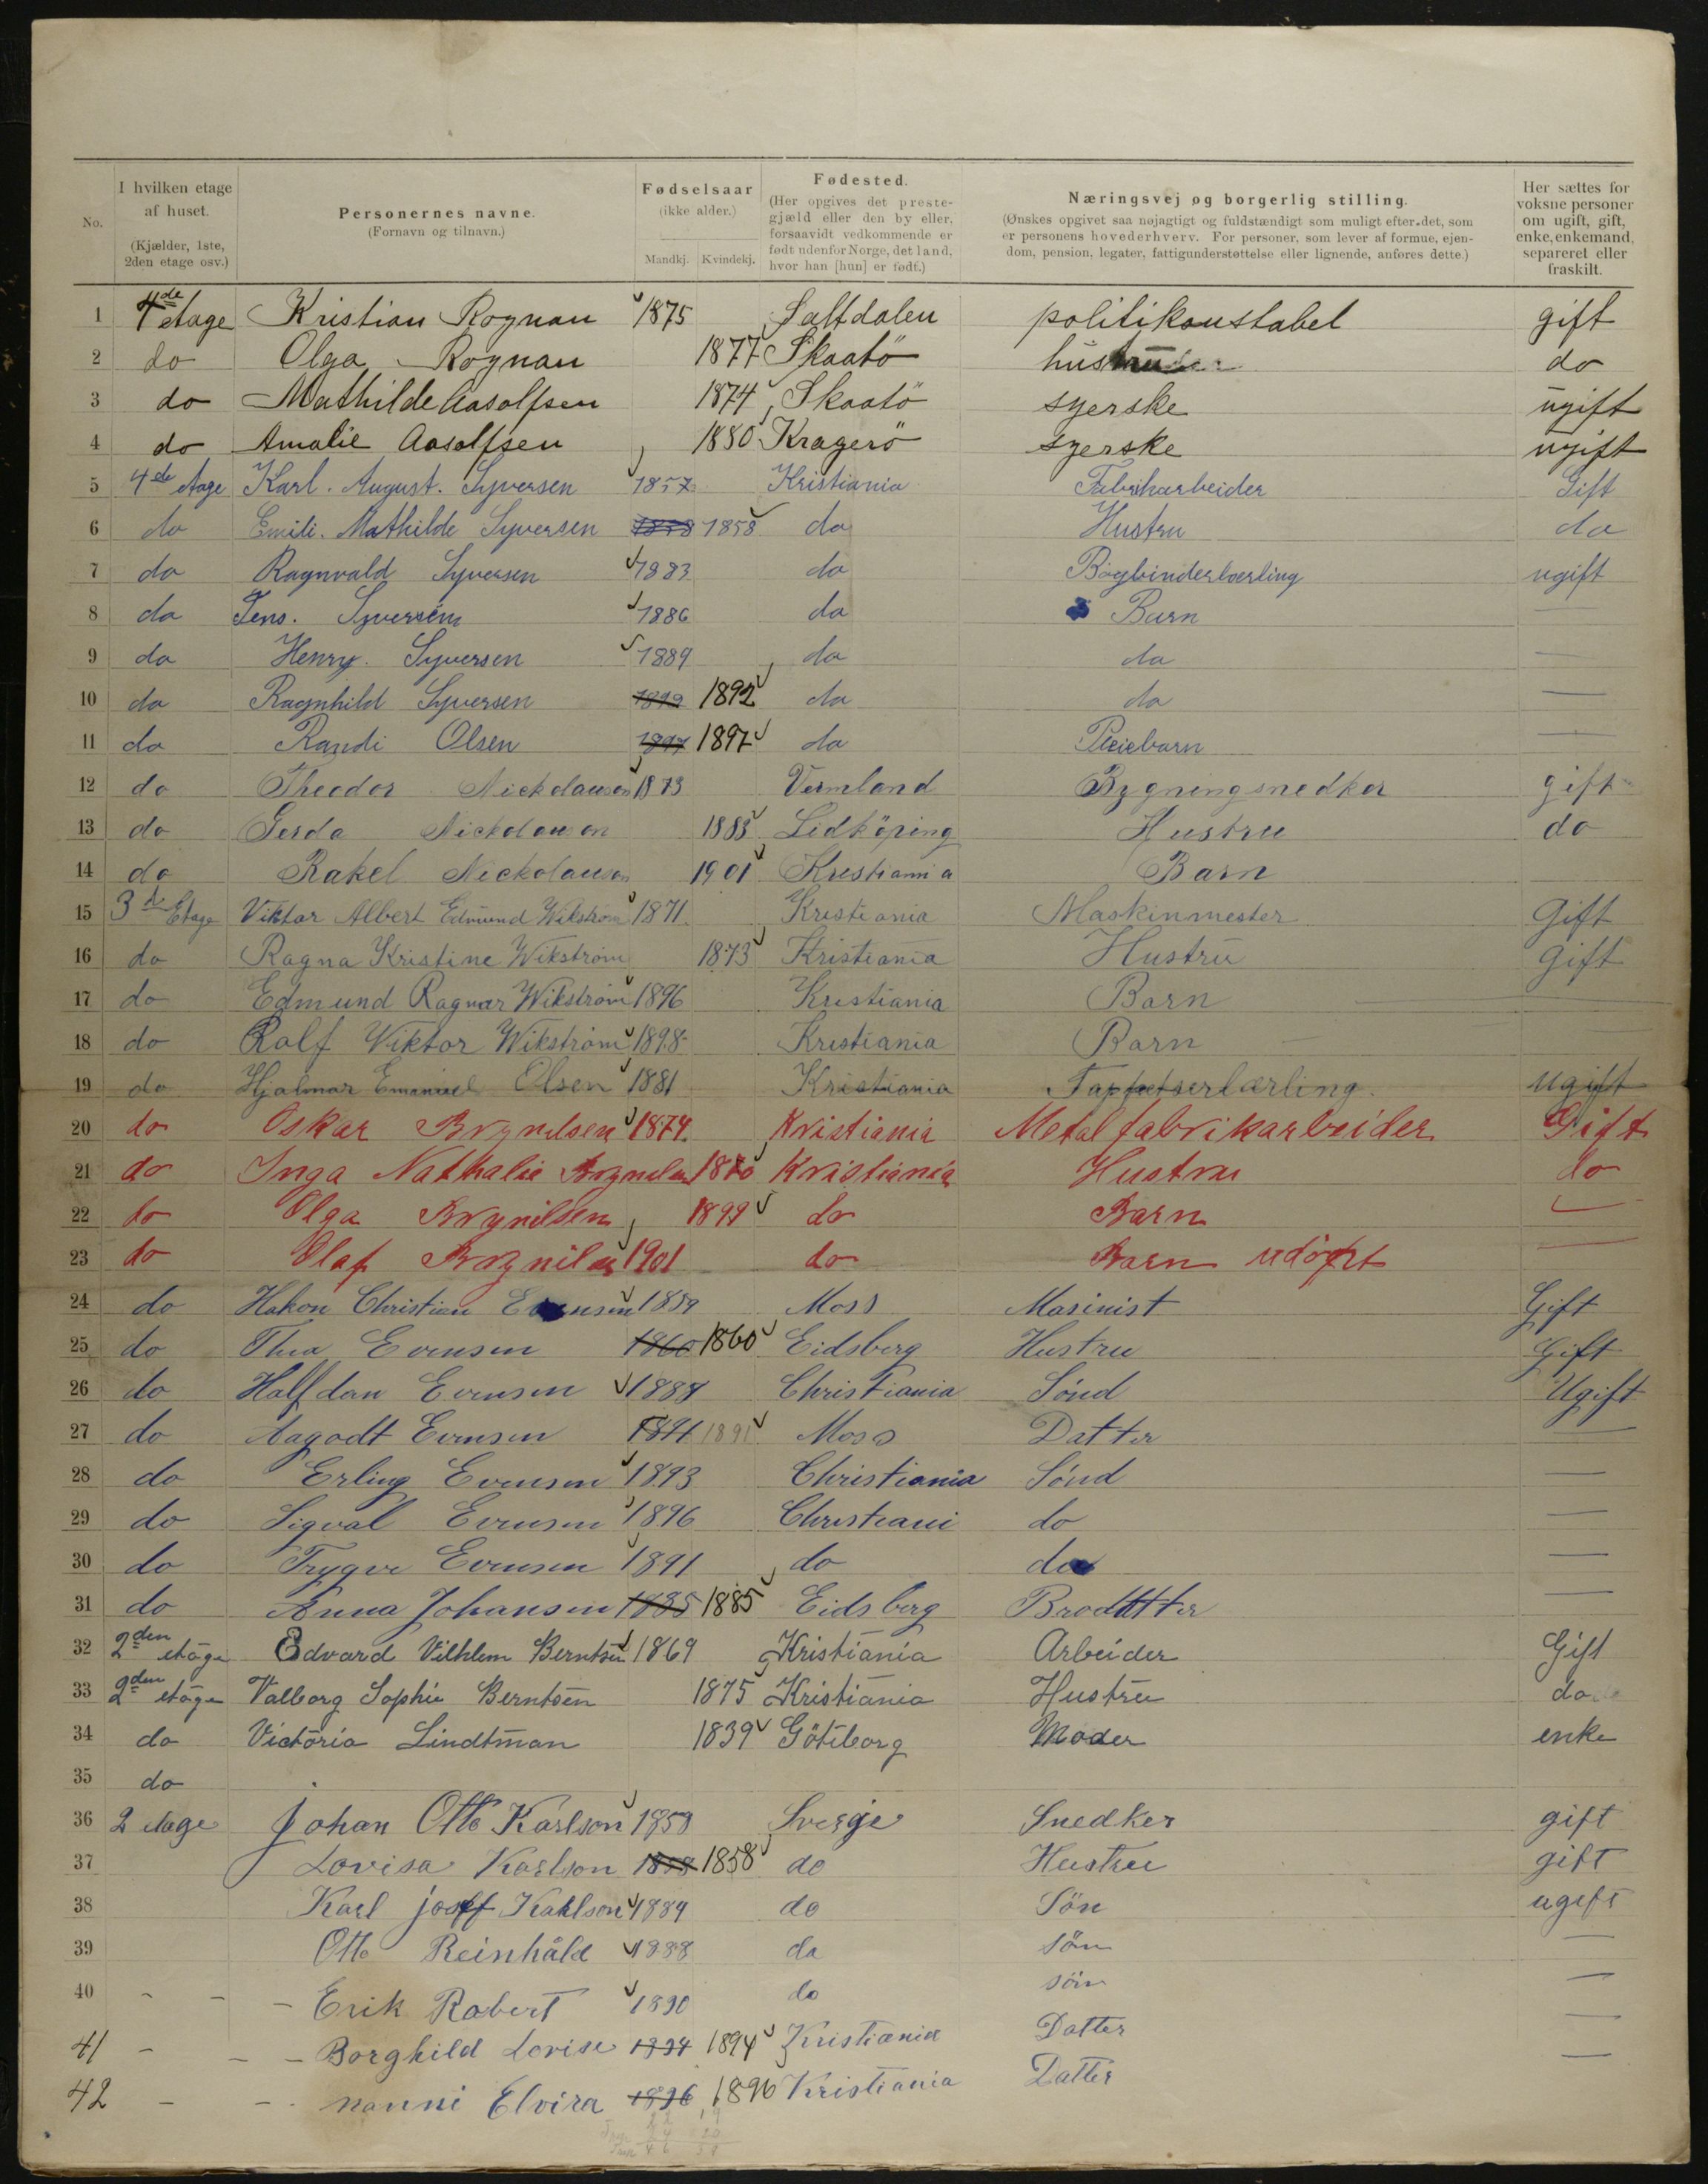 No.
I hvilken etage af huset. (Kjælder, 1ste, 2den etage osv.)
Personernes navne. (Fornavn og tilnavn.)
Fødselsaar (ikke alder.) Mandkj. Kvindekj.
Fødested. (Her opgives det prestegjæld eller den by eller, forsaavidt vedkommende er født udenfor Norge, det land, hvor han [hun] er født.)
Næringsvej og borgerlig stilling. (Ønskes opgivet saa nøjagtigt og fuldstændigt som muligt efter det, som er personens hovederhverv. For personer, som lever af formue, ejendom, pension, legater, fattigunderstøttelse eller lignende, anføres dette.)
Her sættes for voksne personer om ugift, gift, enke, enkemand, separeret eller fraskilt.
1 4de etage Kristian Rognan 1875 Saltdalen politikonstabel gift
2 do Olga Rognan 1877 Skaatö hustru do
3 do Mathilde Aasolfsen 1874 Skaatö syerske ugift
4 do Amalie Aasolfsen 1880 Kragerö syerske ugift
5 4de etage Karl. August. Syversen 1857 Kristiania Fabrikarbeider Gift
6 do Emili. Mathilde Syversen 1858 1858 do Hustru do
7 do Ragnvald Syversen 1883 do Bogbinderlærling ugift
8 do Jens. Syversen 1886 do Barn —
9 do Henry. Syversen 1889 do do —
10 do Ragnhild Syversen 1892 1892 do do —
11 do Randi Olsen 1897 1897 do Pleiebarn —
12 do Theodor Nickolauson 1873 Vermland Bygningsnedker gift
13 do Gerda Nickolauson 1883 Lidköping Hustru do
14 do Rakel Nickolauson 1901 Kristiania Barn
15 3de Etage Viktor Albert Edmund Wikstrøm 1871. Kristiania Maskinmester Gift
16 do Ragna Kristine Wikstrøm 1873 Kristiania Hustru Gift
17 do Edmund Ragnar Wikstrøm 1896 Kristiania Barn
18 do Rolf Viktor Wikstrøm 1898 Kristiania Barn
19 do Hjalmar Emanuel Olsen 1881 Kristiania Tapetserlærling. ugift
20 do Oskar Brynilsen 1874. Kristiania Metalfabrikarbeider Gift
21 do Inga Nathalie Brynilsen Kristiania Hustru do
22 do Olga Brynilsen 1899 do Barn —
23 do Olaf Brynilsen 1901 do Barn udöpt —
24 do Hakon Christian Evensen 1859 Moss Masinist Gift
25 do Thea Evensen 1860 1860 Eidsberg Hustru Gift
26 do Halfdan Evensen 1888 Christiania Sönd Ugift
27 do Aagodt Evensen 1891 1891 Moss Datter —
28 do Erling Evensen 1893 Christiania Sönd —
29 do Sigval Evensen 1896 Christiani do —
30 do Trygve Evensen 1891 do do —
31 do Anna Johansen 1885 1885 Eidsberg Brodatter —
32 2den etage Edvard Vilhlem Berntsen 1869 Kristiania Arbeider Gift
33 2den etage Valborg Sophie Berntsen 1875 Kristiania Hustru do
34 do Victoria Lindtman 1839 Göteborg Moder enke
35 do
36 2 etage Johan Otto Karlson 1859 Sverge Snedker gift
37 Lovisa Karlson 1858 1858 do Hustru gift
38 Karl josef Kahlson 1884 do Sön ugift
39 Otto Reinhåld 1888 do sön —
40 - - - Erik Robert 1890 do sön —
41 - - - Borghild Lovise 1894 1894 Kristiania Datter —
42 - - - nanni Elvira 1896 1896 Kristiania Datter —